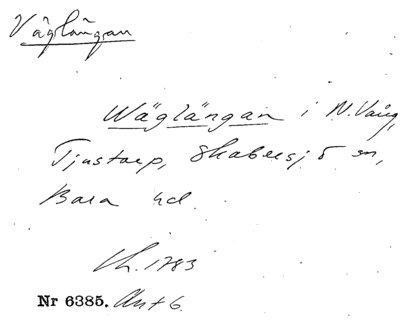 Väglängan
Wäglängan i N. Vång,
Tjustorp, Skabersjö sn,
Bara hd
Ch. 1783
Nr 6385. Akt 6